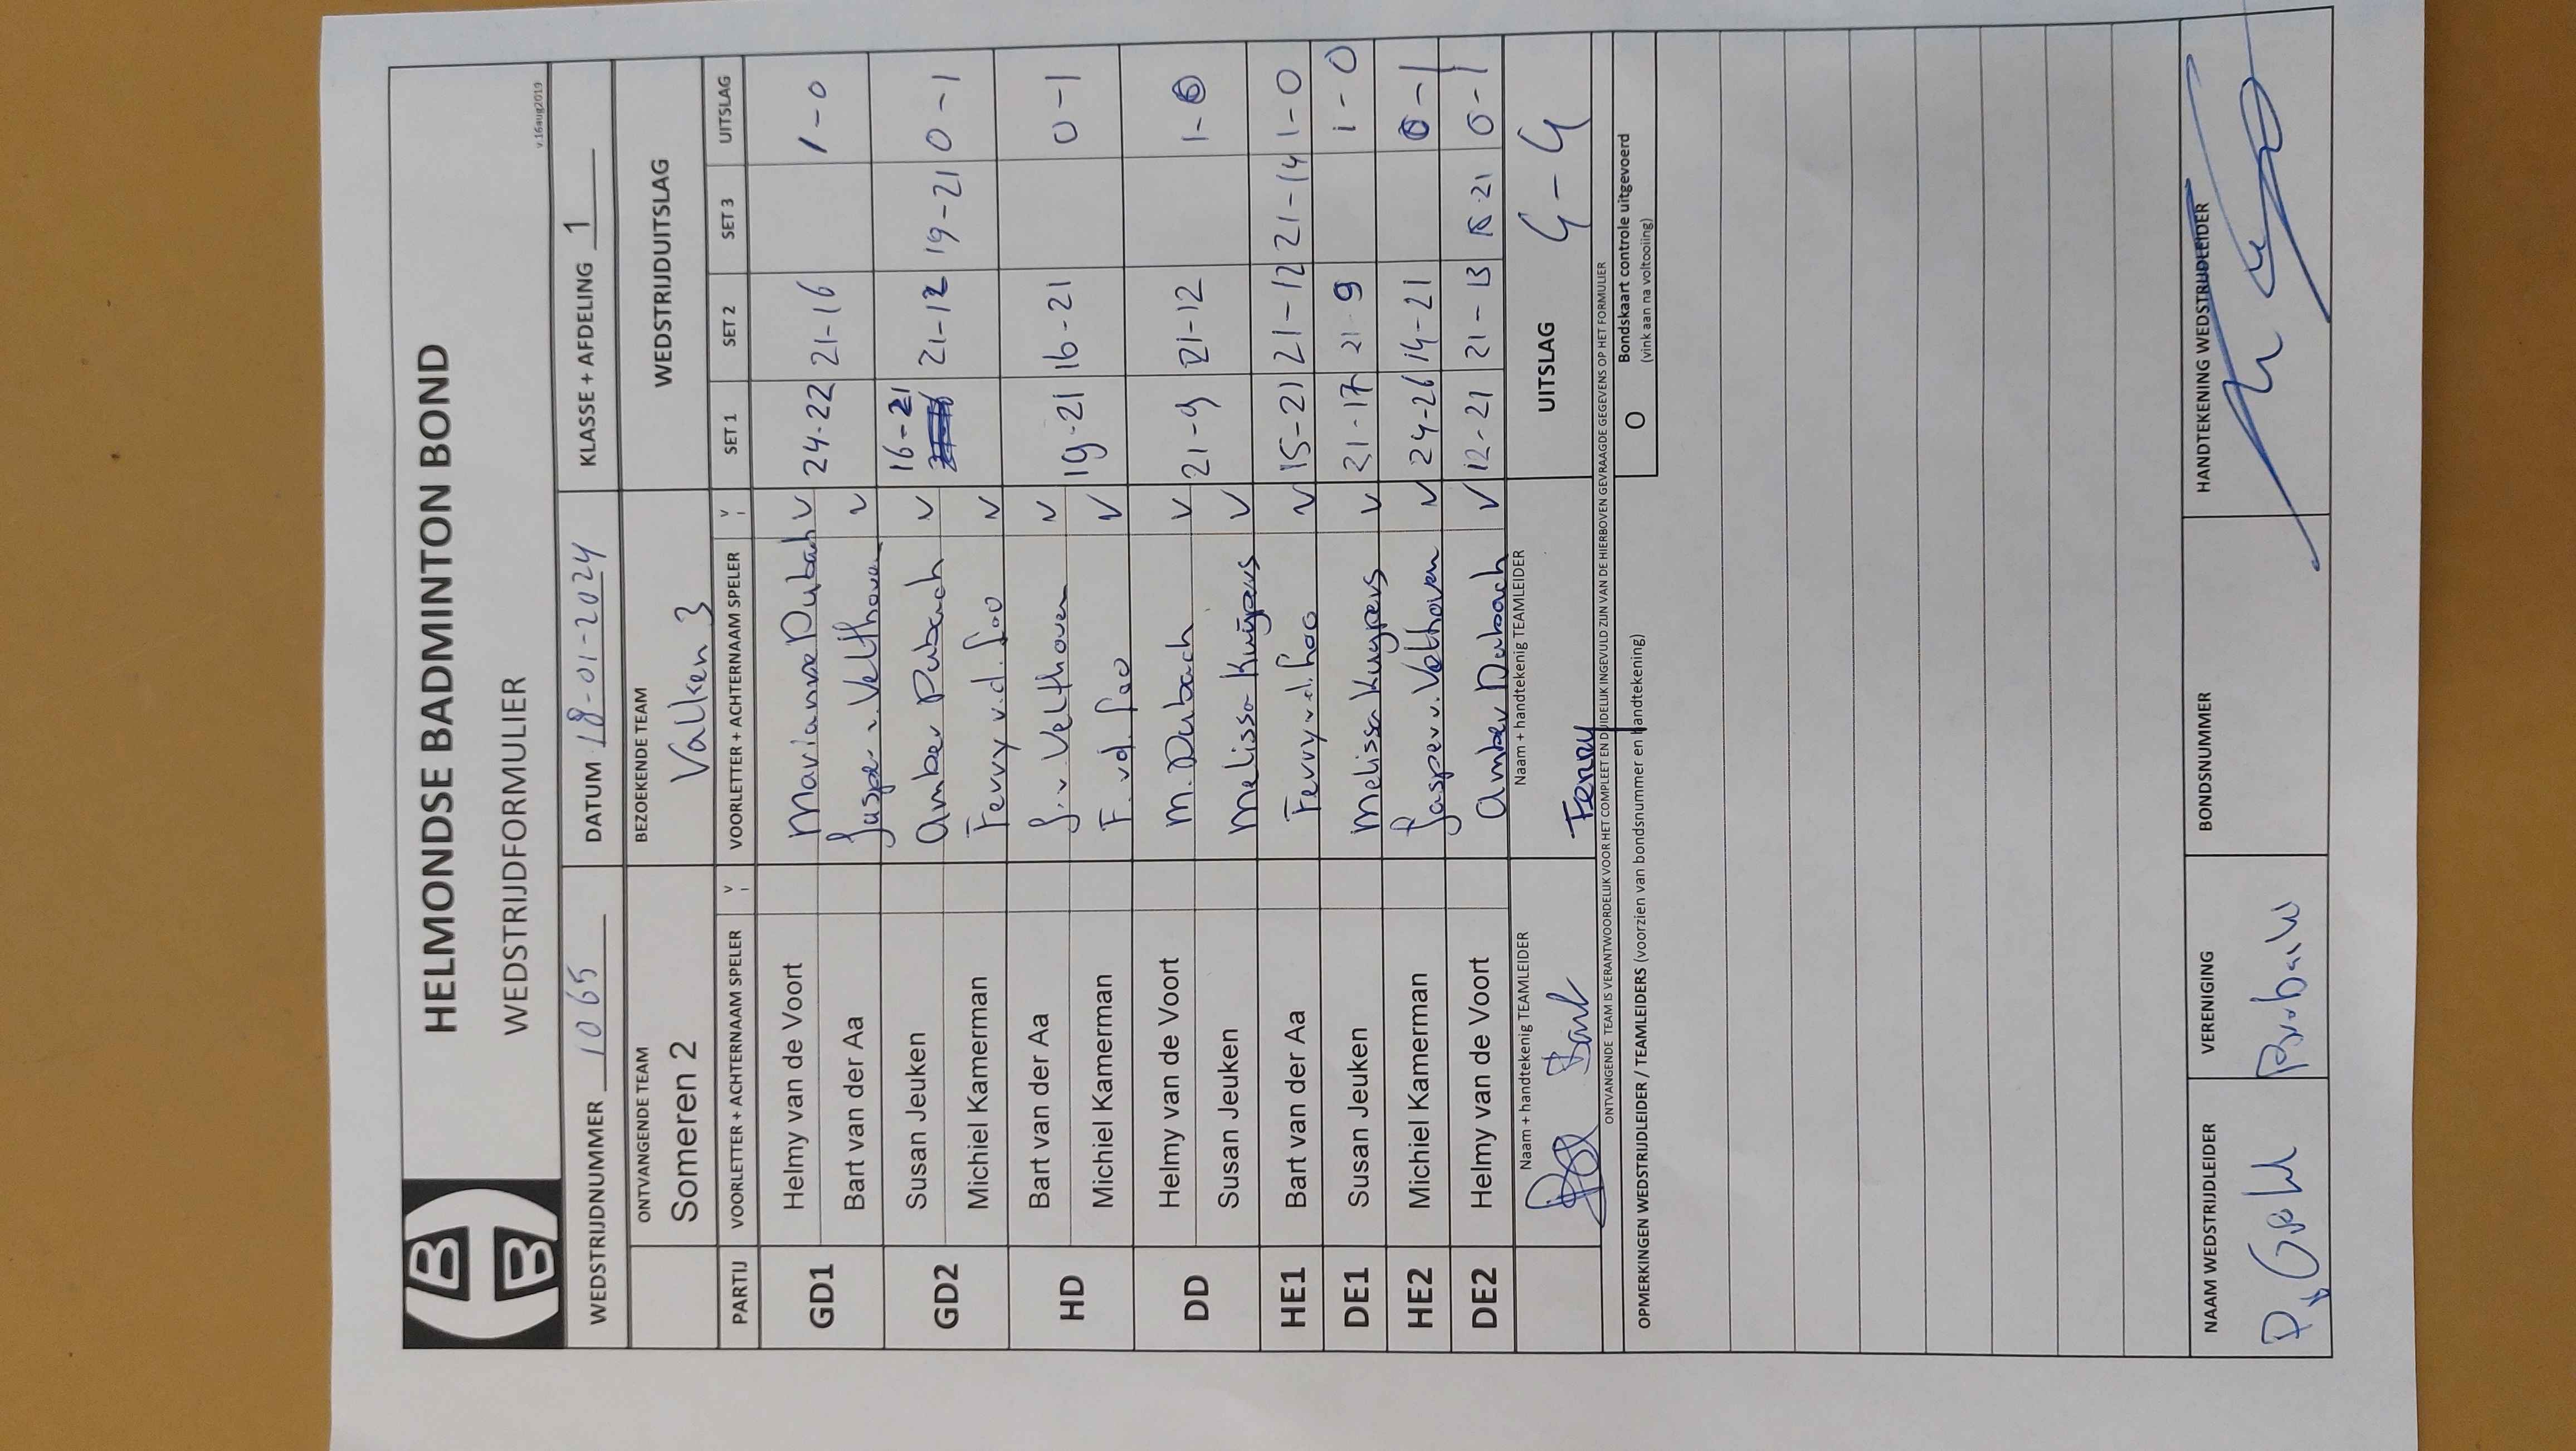 HELMONDSE BADMINTON BOND
WEDSTRIJDFORMULIER
v.16aug2019
WEDSTRIJDNUMMER 1065 DATUM 18-01-2024 KLASSE + AFDELING 1
ONTVANGENDE TEAM BEZOEKENDE TEAM WEDSTRIJDUITSLAG
Someren 2 Valken 3
PARTIJ VOORLETTER + ACHTERNAAM SPELER V VOORLETTER + ACHTERNAAM SPELER V SET 1 SET 2 SET 3 UITSLAG
GD1 Helmy van de Voort Marianne Dubach V 24-22 21-16 1-0
Bart van der Aa Jasper v. Velthoven V
GD2 Susan Jeuken Amber Dubach V 16-21 21-12 19-21 0-1
Michiel Kamerman Ferry v.d. Loo V
HD Bart van der Aa J. v. Velthoven V 19-21 16-21 0-1
Michiel Kamerman F. vd. Loo V
DD Helmy van de Voort M. Dubach V 21-9 21-12 1-0
Susan Jeuken Melissa Kuijpers V
HE1 Bart van der Aa Ferry v.d. Loo V 15-21 21-12 21-14 1-0
DE1 Susan Jeuken Melissa Kuypers V 21-17 21-9 1-0
HE2 Michiel Kamerman Jasper v. Velthoven V 24-26 14-21 0-1
DE2 Helmy van de Voort Amber Dubach V 12-21 21-13 -21 0-1
Naam + handtekenig TEAMLEIDER Naam + handtekenig TEAMLEIDER UITSLAG 4-4
Bart Ferry
ONTVANGENDE TEAM IS VERANTWOORDELIJK VOOR HET COMPLEET EN DUIDELIJK INGEVULD ZIJN VAN DE HIERBOVEN GEVRAAGDE GEGEVENS OP HET FORMULIER
OPMERKINGEN WEDSTRIJDLEIDER / TEAMLEIDERS (voorzien van bondsnummer en handtekening) O Bondskaart controle uitgevoerd
(vink aan na voltooiing)
NAAM WEDSTRIJDLEIDER VERENIGING BONDSNUMMER HANDTEKENING WEDSTRIJDLEIDER